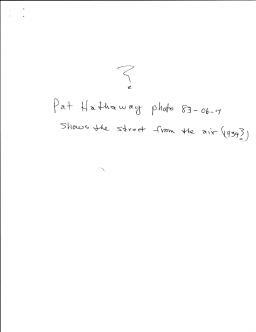 ?
Pat Hathaway photo 83-06-7
Shows the street from the air (1939?)